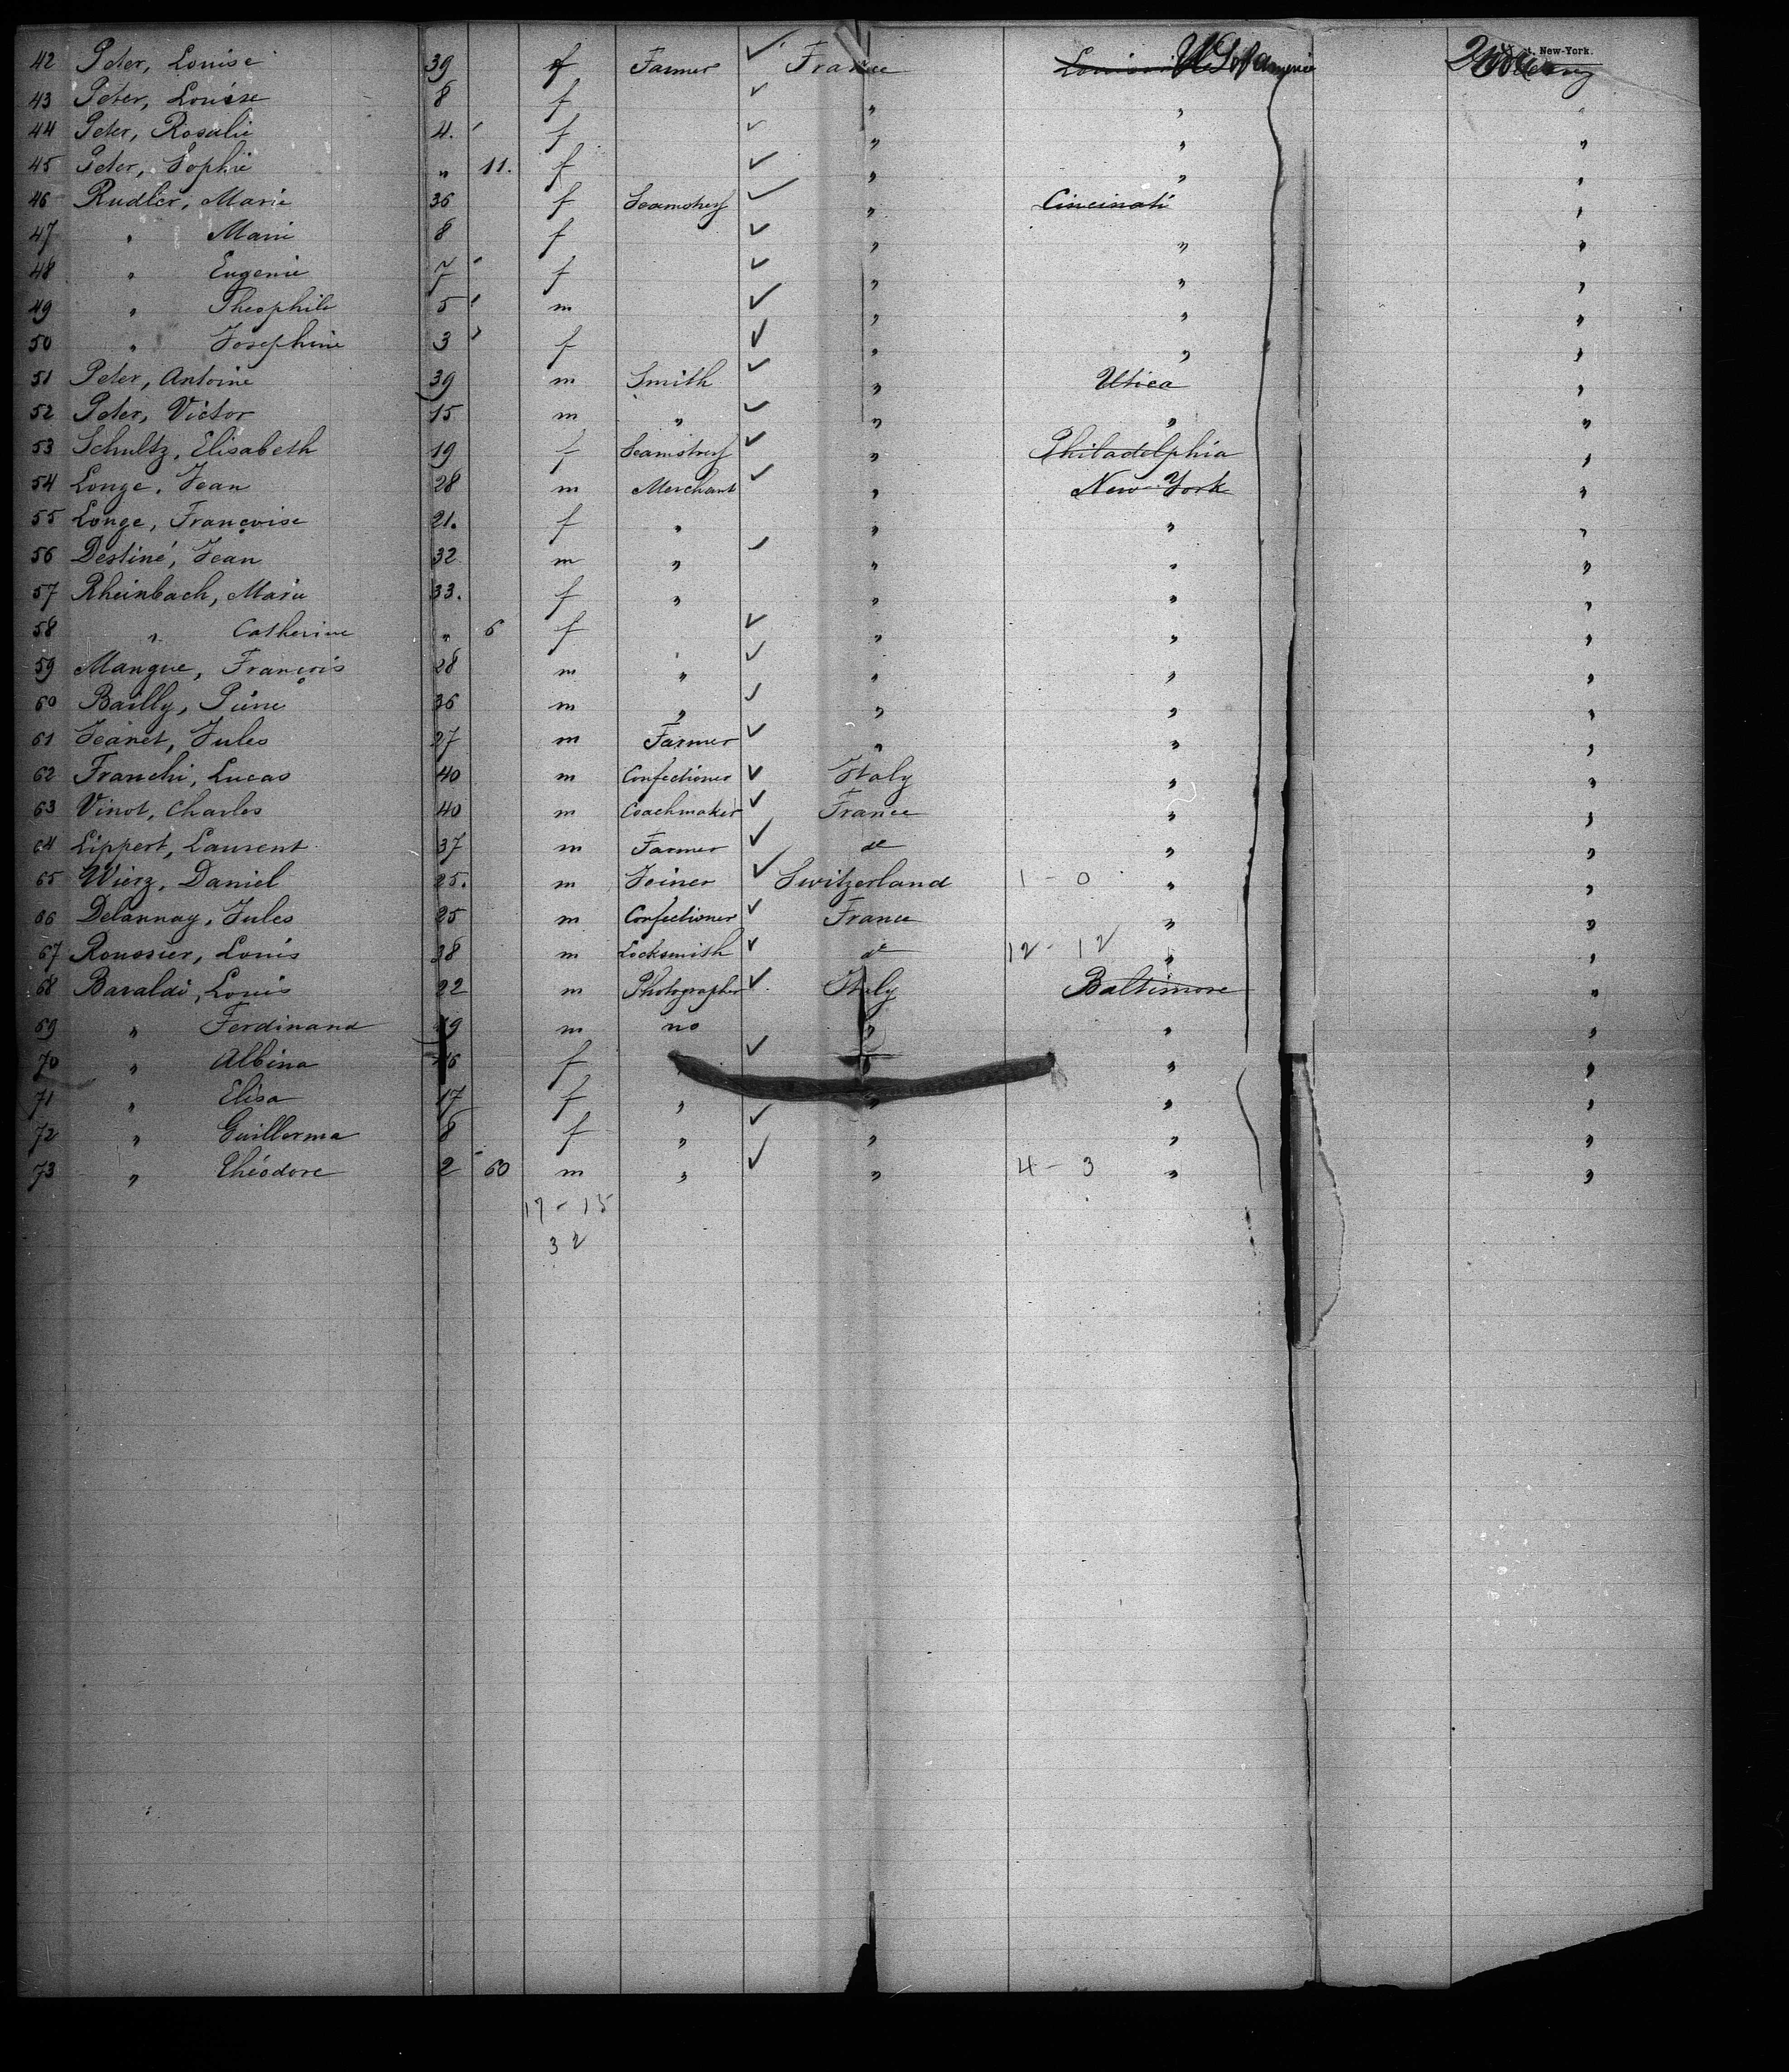 t, New-York.
42 Peter, Louise 39 f Farmer ✓ France U.S. of America
43 Peter, Louise 8 f ✓ " " "
44 Peter, Rosalie 4. f ✓ " " "
45 Peter, Sophie " 11. f ✓ " " "
46 Rudler, Marie 36 f Seamstress ✓ " Cincinati "
47 " Marie 8 f ✓ " " "
48 " Eugenie 7 f ✓ " " "
49 " Theophile 5 m ✓ " " "
50 " Josephine 3 f ✓ " " "
51 Peter, Antoine 39 m Smith ✓ " Utica "
52 Peter, Victor 15 m " ✓ " " "
53 Schultz, Elisabeth 19 f Seamstress ✓ " Philadelphia "
54 Longe, Jean 28 m Merchant ✓ " New-York "
55 Longe, Françoise 21. f " " " "
56 Destiné, Jean 32 m " ✓ " " "
57 Rheinbach, Marie 33. f " " " "
58 " Catherine " 6 f ✓ " " "
59 Mangue, François 28 m " ✓ " " "
60 Bailly, Pierre 36 m " ✓ " " "
61 Jeanet, Jules 27 m Farmer ✓ " " "
62 Franchi, Lucas 40 m Confectioner ✓ Italy " "
63 Vinot, Charles 40 m Coachmaker ✓ France " "
64 Lippert, Laurent 37 m Farmer ✓ do " "
65 Wierz, Daniel 25. m Joiner ✓ Switzerland 1 - 0 " "
66 Delannay, Jules 25 m Confectioner ✓ France " "
67 Roussier, Louis 38 m Locksmith ✓ do 12 - 12 " "
68 Baraldi, Louis 22 m Photographer ✓ Italy Baltimore "
69 " Ferdinand 19 m no " " "
70 " Albina f ✓ " "
71 " Elisa 17 f " " " "
72 " Guillerma 8 f " ✓ " " "
73 " Théodore 2 60 m " ✓ " 4 - 3 " "
17 - 15
32